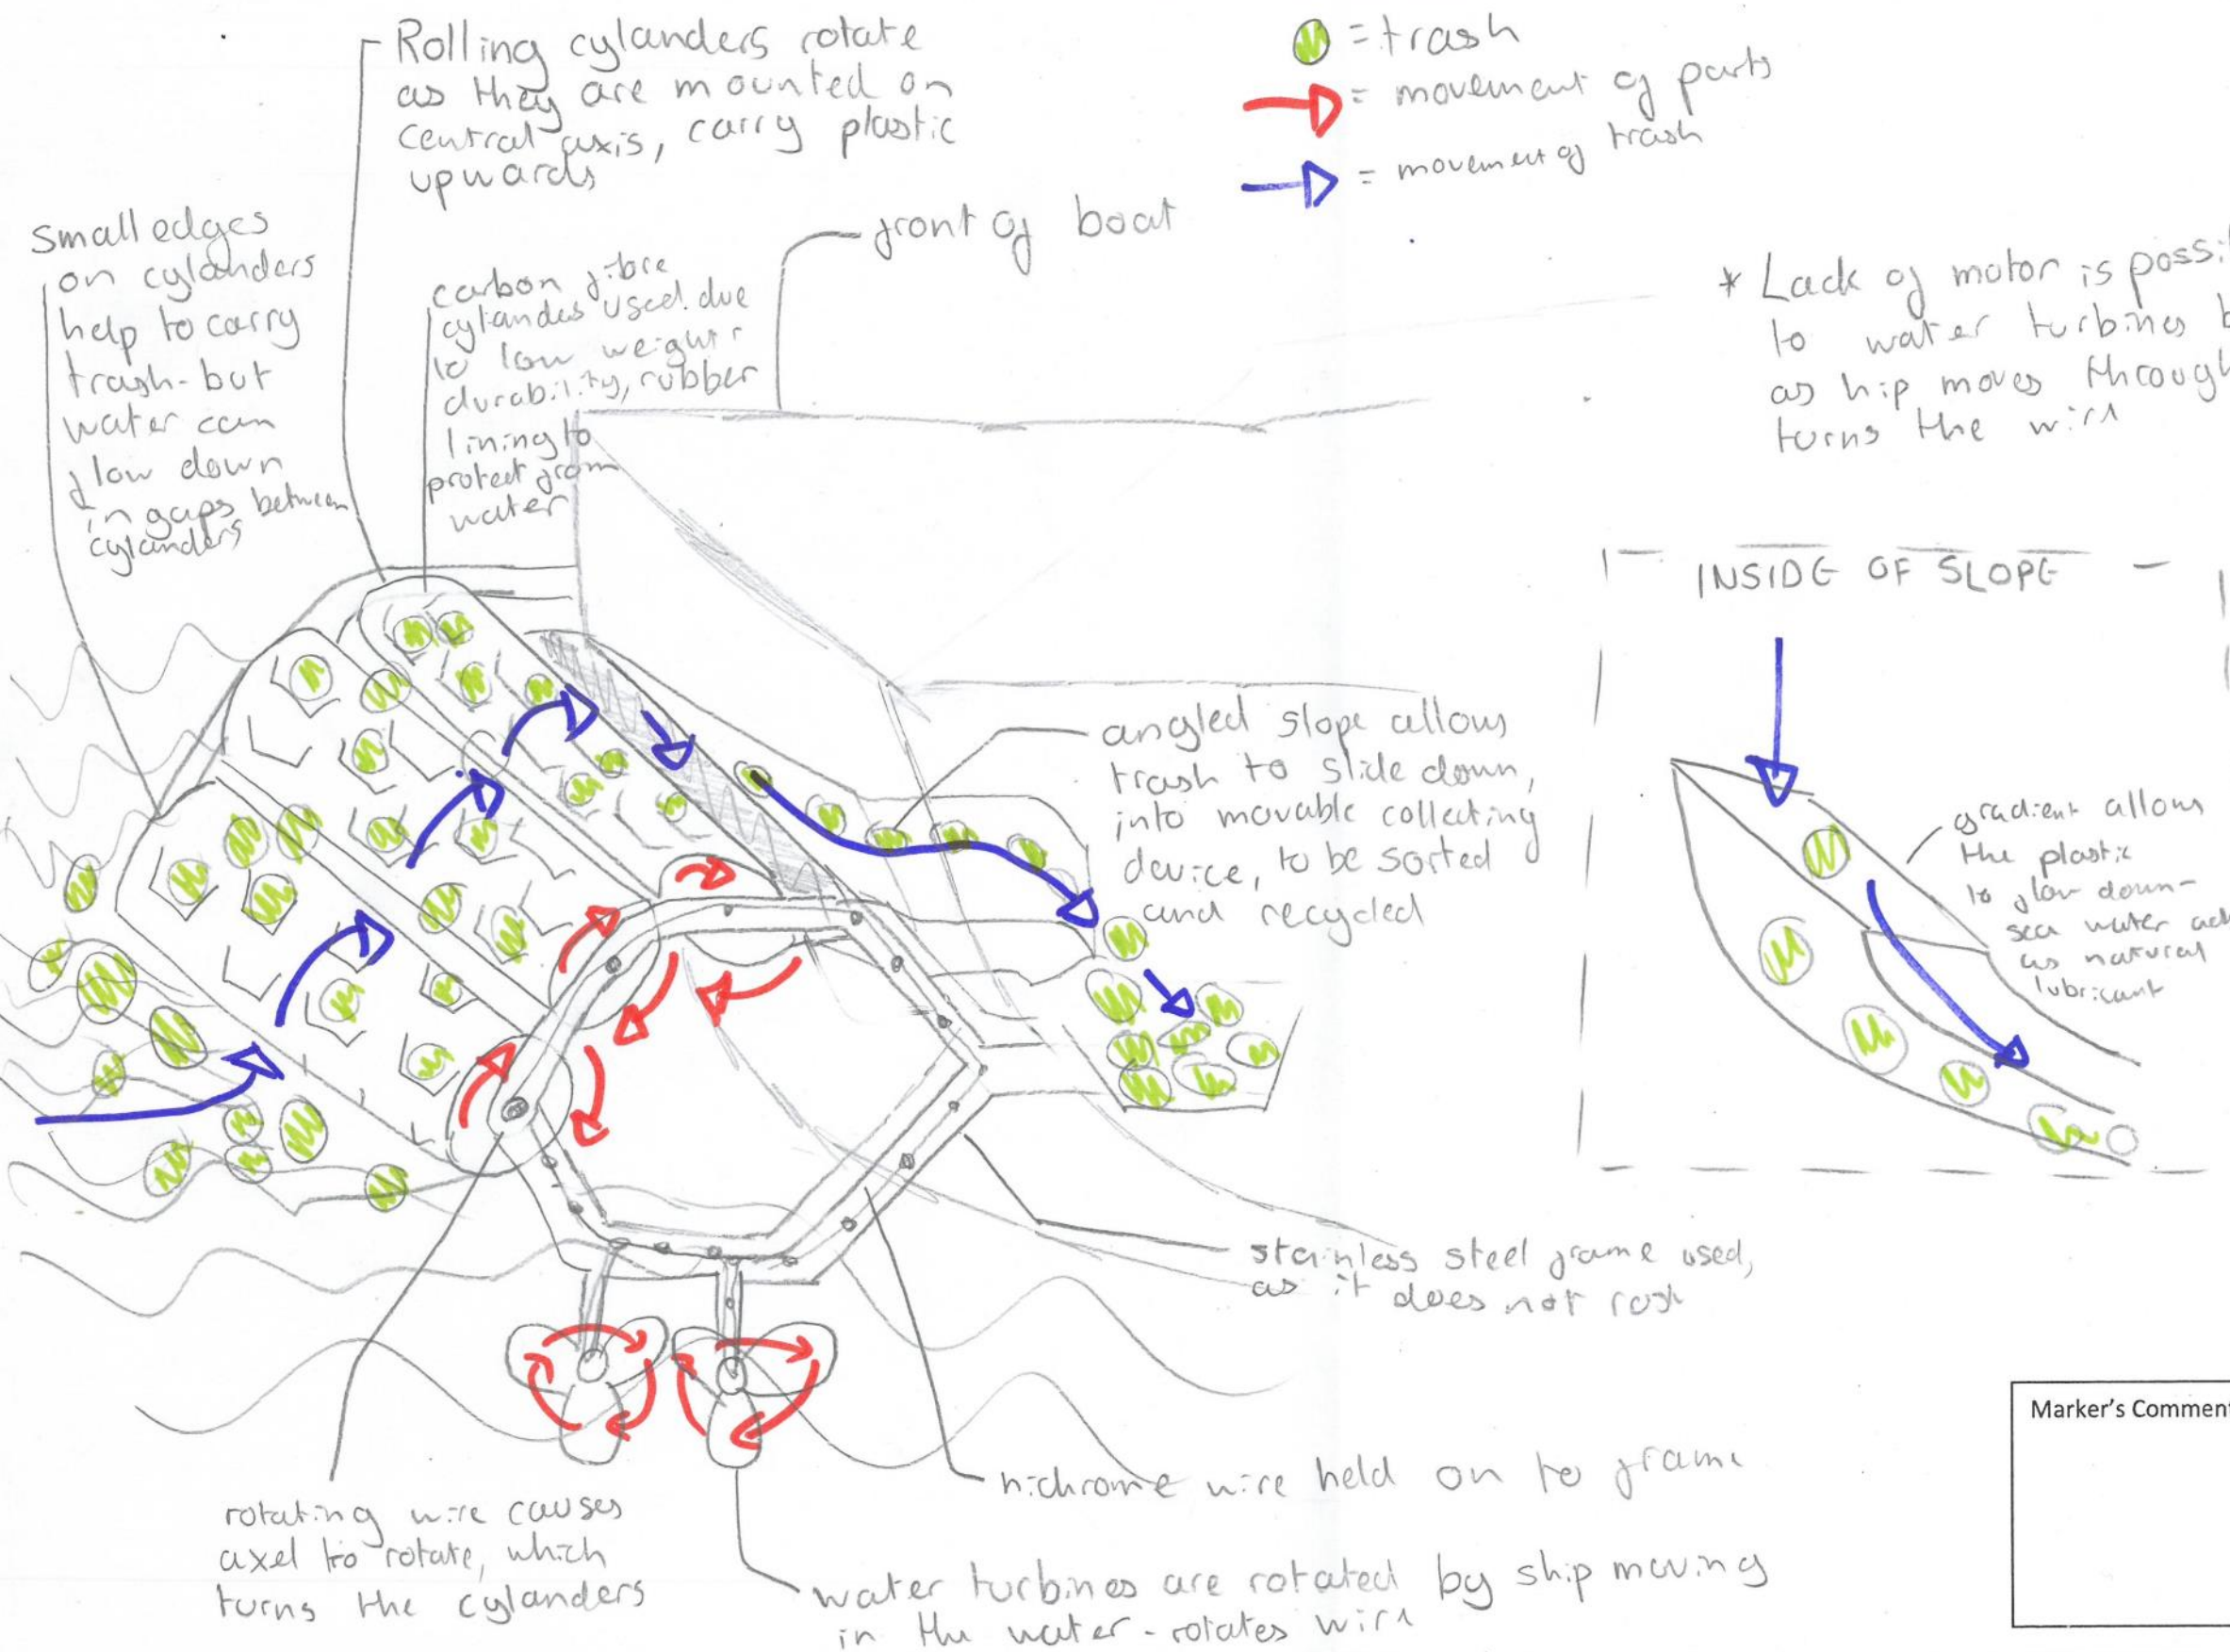 Rolling cylanders rotate
as they are mounted on
central axis, carry plastic
upwards
= trash
= movement of parts
= movement of trash
front of boat
small edges
on cylanders
help to carry
trash - but
water can
flow down
in gaps between
cylanders
carbon fibre
cylandes used due
to low weight
durability, rubber
lining to
protect from
water
* Lack of motor is
to water turbines
as hip moves through
turns the wire
INSIDE OF SLOPE
angled slope allows
trash to slide down,
into movable collecting
device, to be sorted
and recycled
gradient allows
the plastic
to flow down -
sea water
as natural
lubricant
stainless steel frame used,
as it does not rust
nichrome wire held on to frame
rotating wire causes
axel to rotate, which
turns the cylanders
water turbines are rotated by ship moving
in the water - rotates wire
Marker's Comment